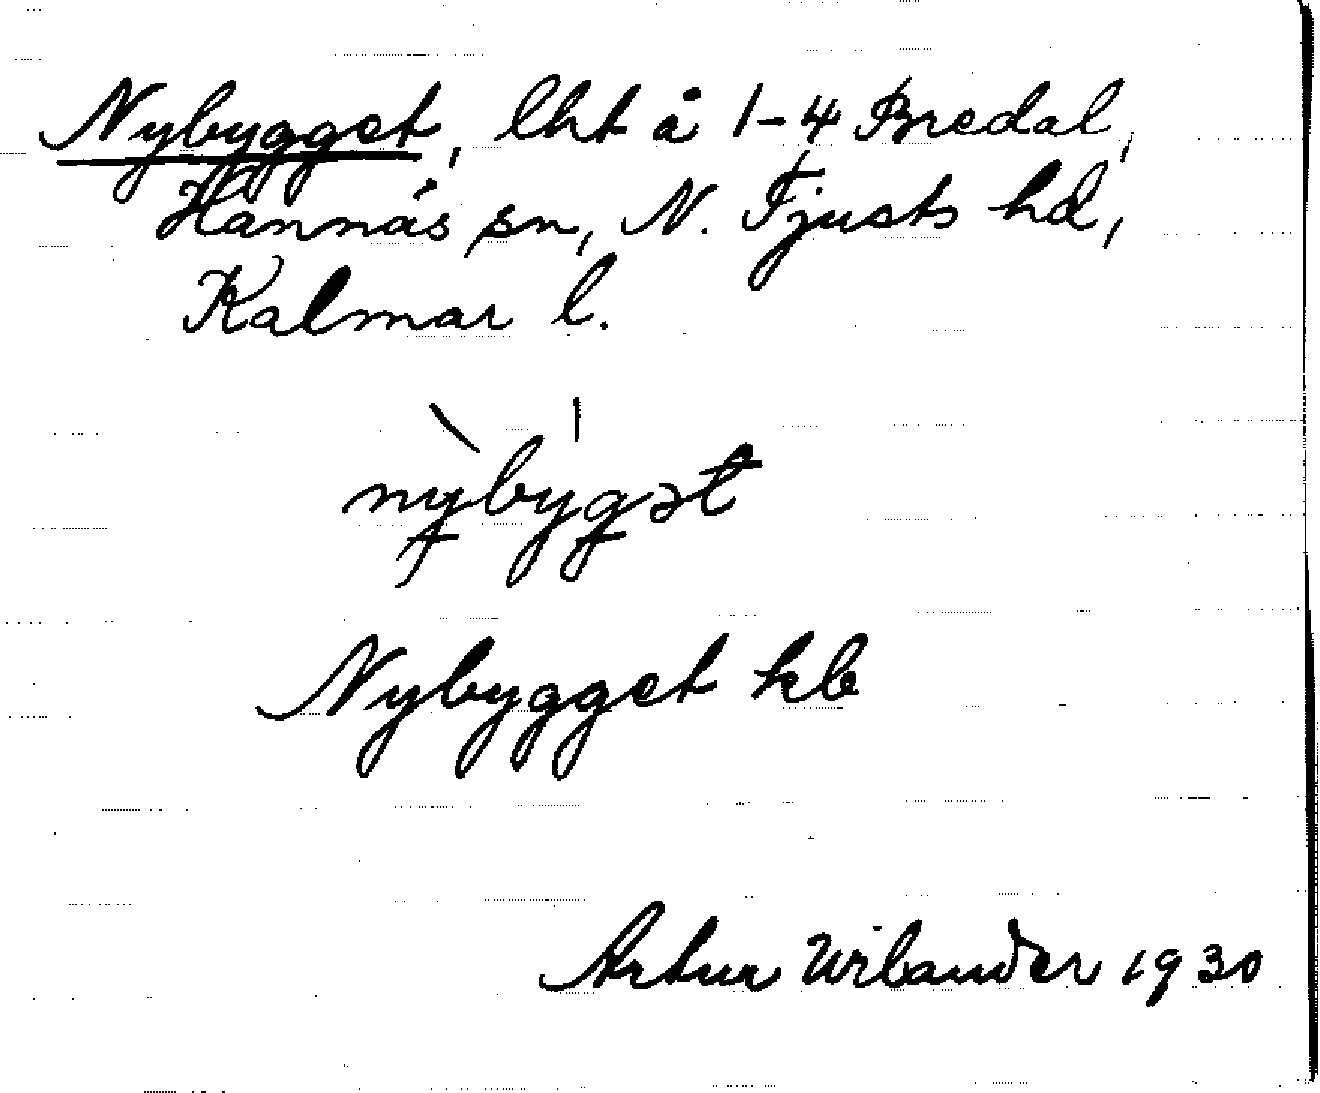 Nybygget, lht å 1-4 Bredal,
Hannäs sn, N. Tjusts hd,
Kalmar l.
nybygət
Nybygget kb
Artur Wilander 1930